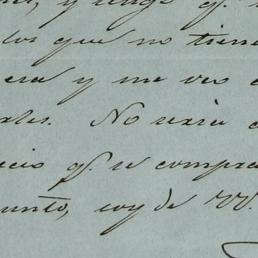 y tengo q.
los que no tiene
era y me veo
ales. No seria
cio q. se compra
unto, soy de VV.